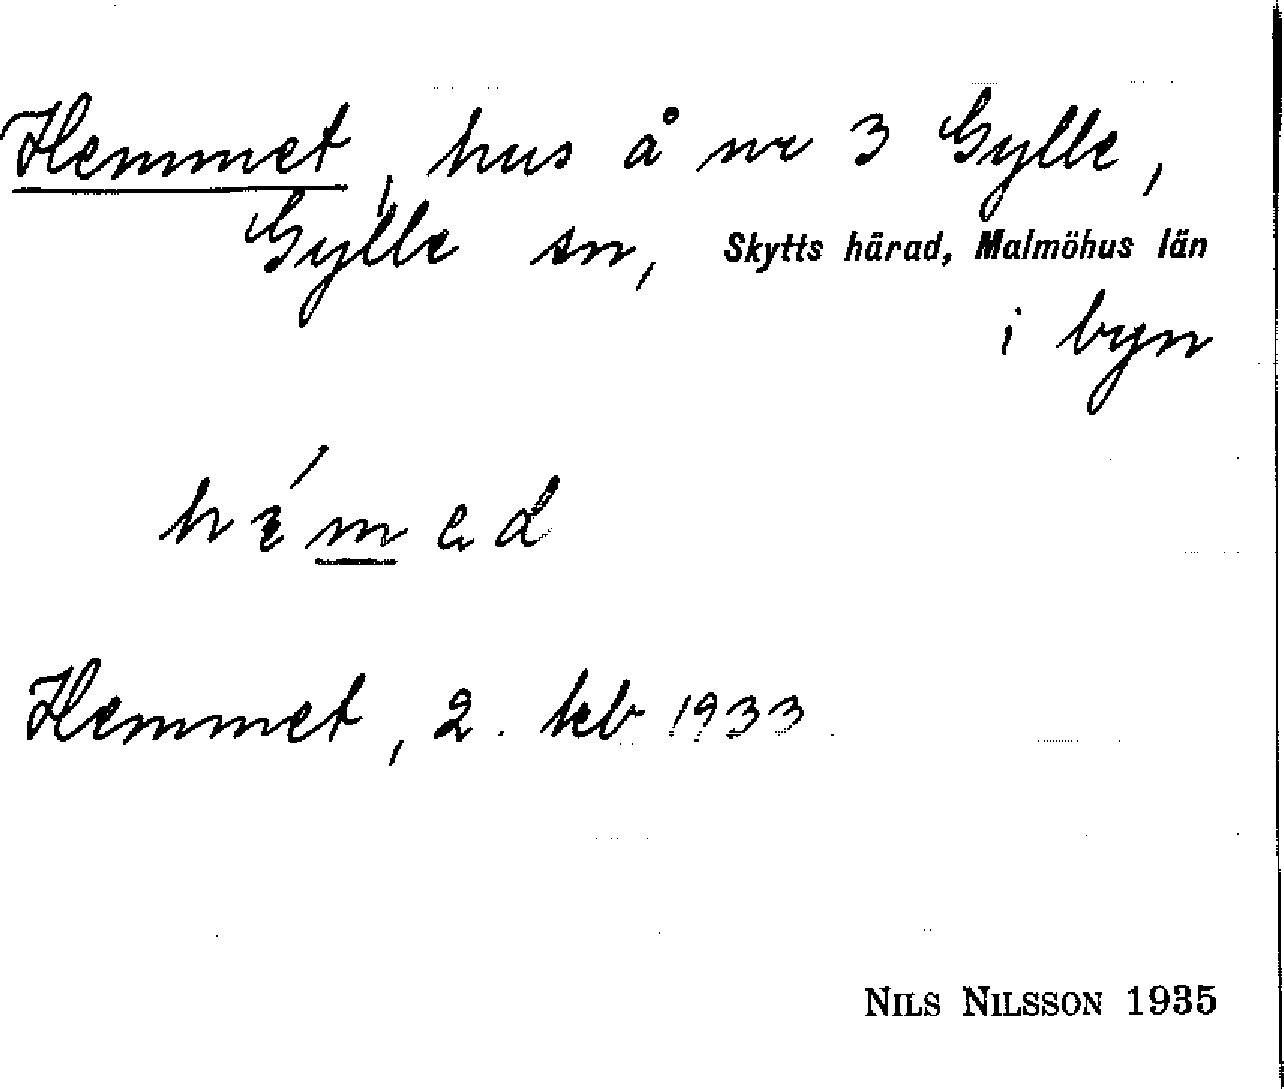 Hemmet, hus å nr 3 Gylle,
Gylle sn, Skytts härad, Malmöhus län
i byn
Hemmet, 2. keb 1933.
NILS NILSSON 1935